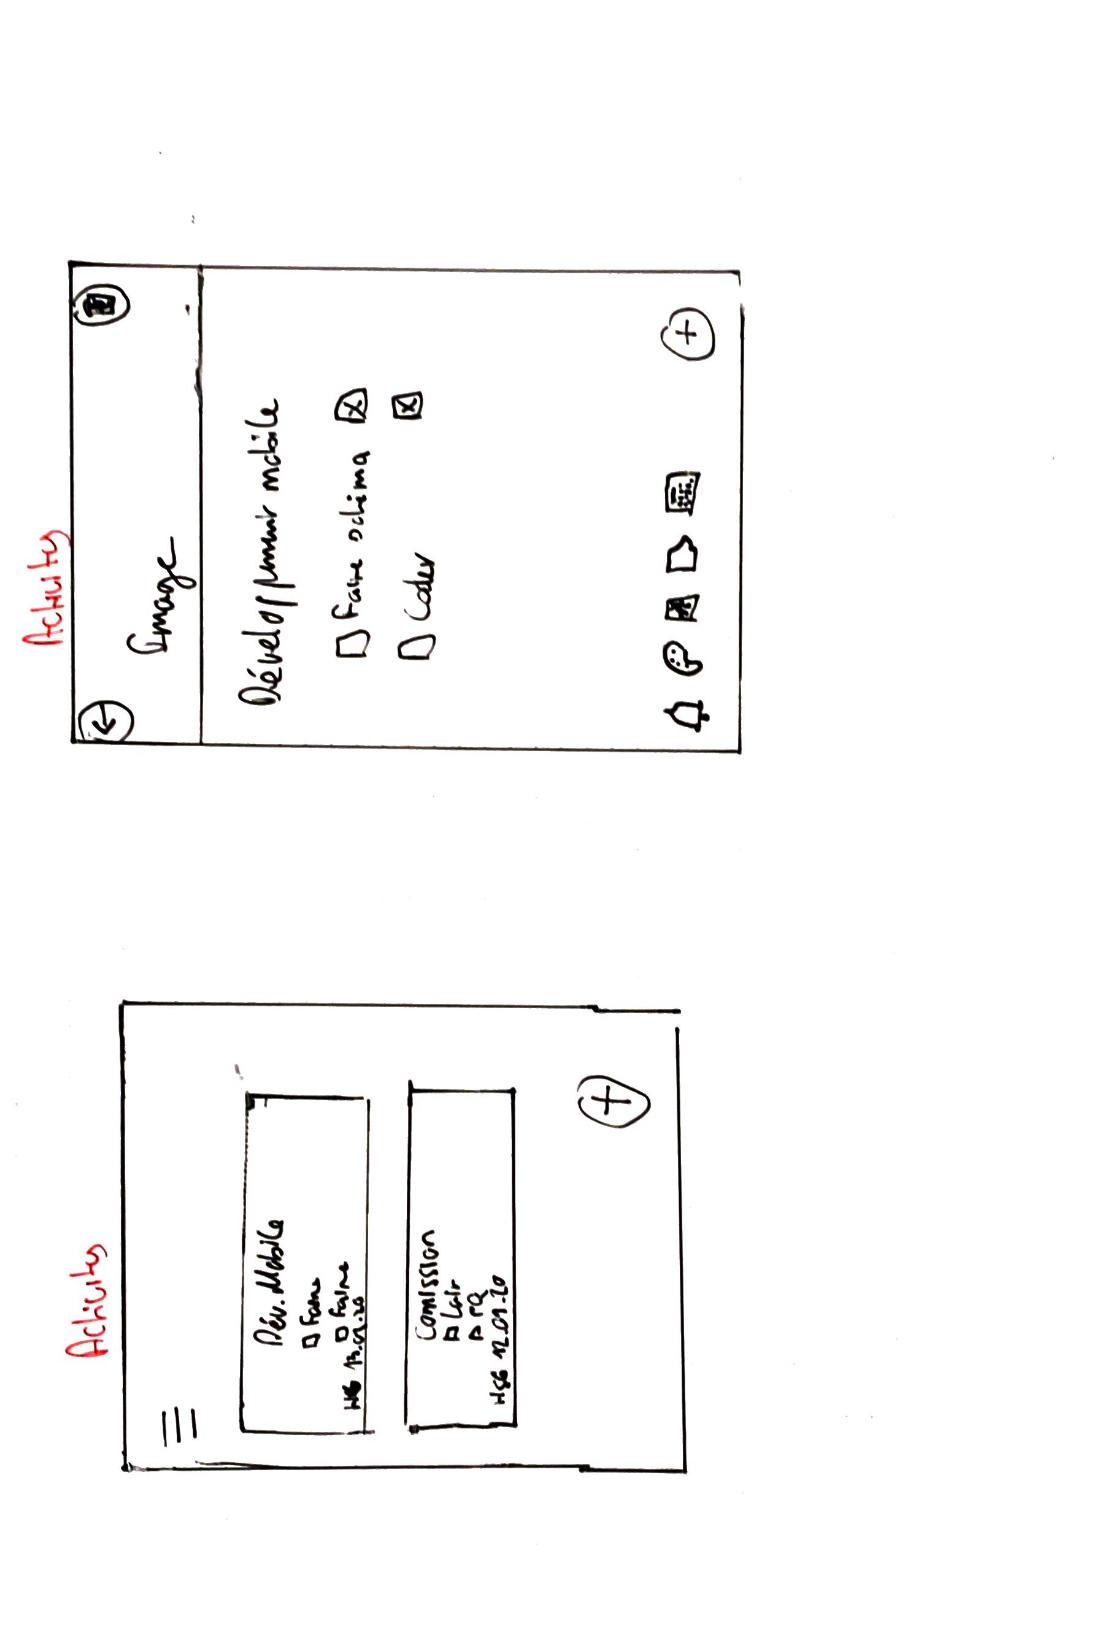 Activity
Dév. Mobile
Faire
Faire
Comission
Lait
PQ
12.01.20
Activity
Image
Développement mobile
Faire schima
Coder